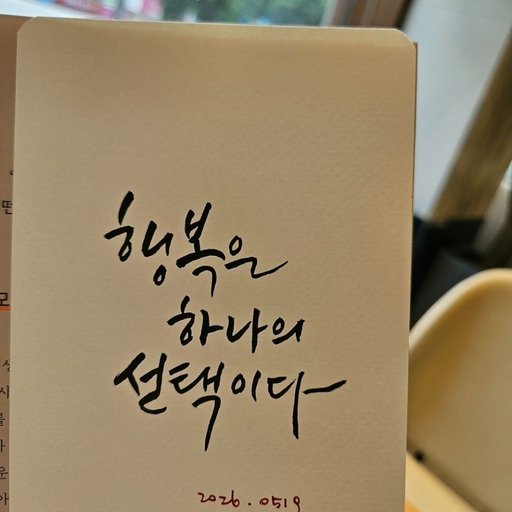 행복은
하나의
선택이다
2026.0519